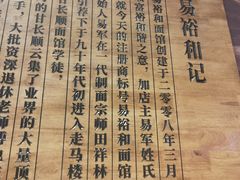 易裕和记
裕和面馆创建于二〇〇八年三月
富裕和牌之意,加店主易军姓氏
就今天的注册商标号易裕和面馆
始人易军在一代制面宗师田祥林
引荐下于九十年代初进入走马楼
的甘长顺面馆学徒。
甘长顺面馆集了业界的大量顶
手,大批资深退休老师